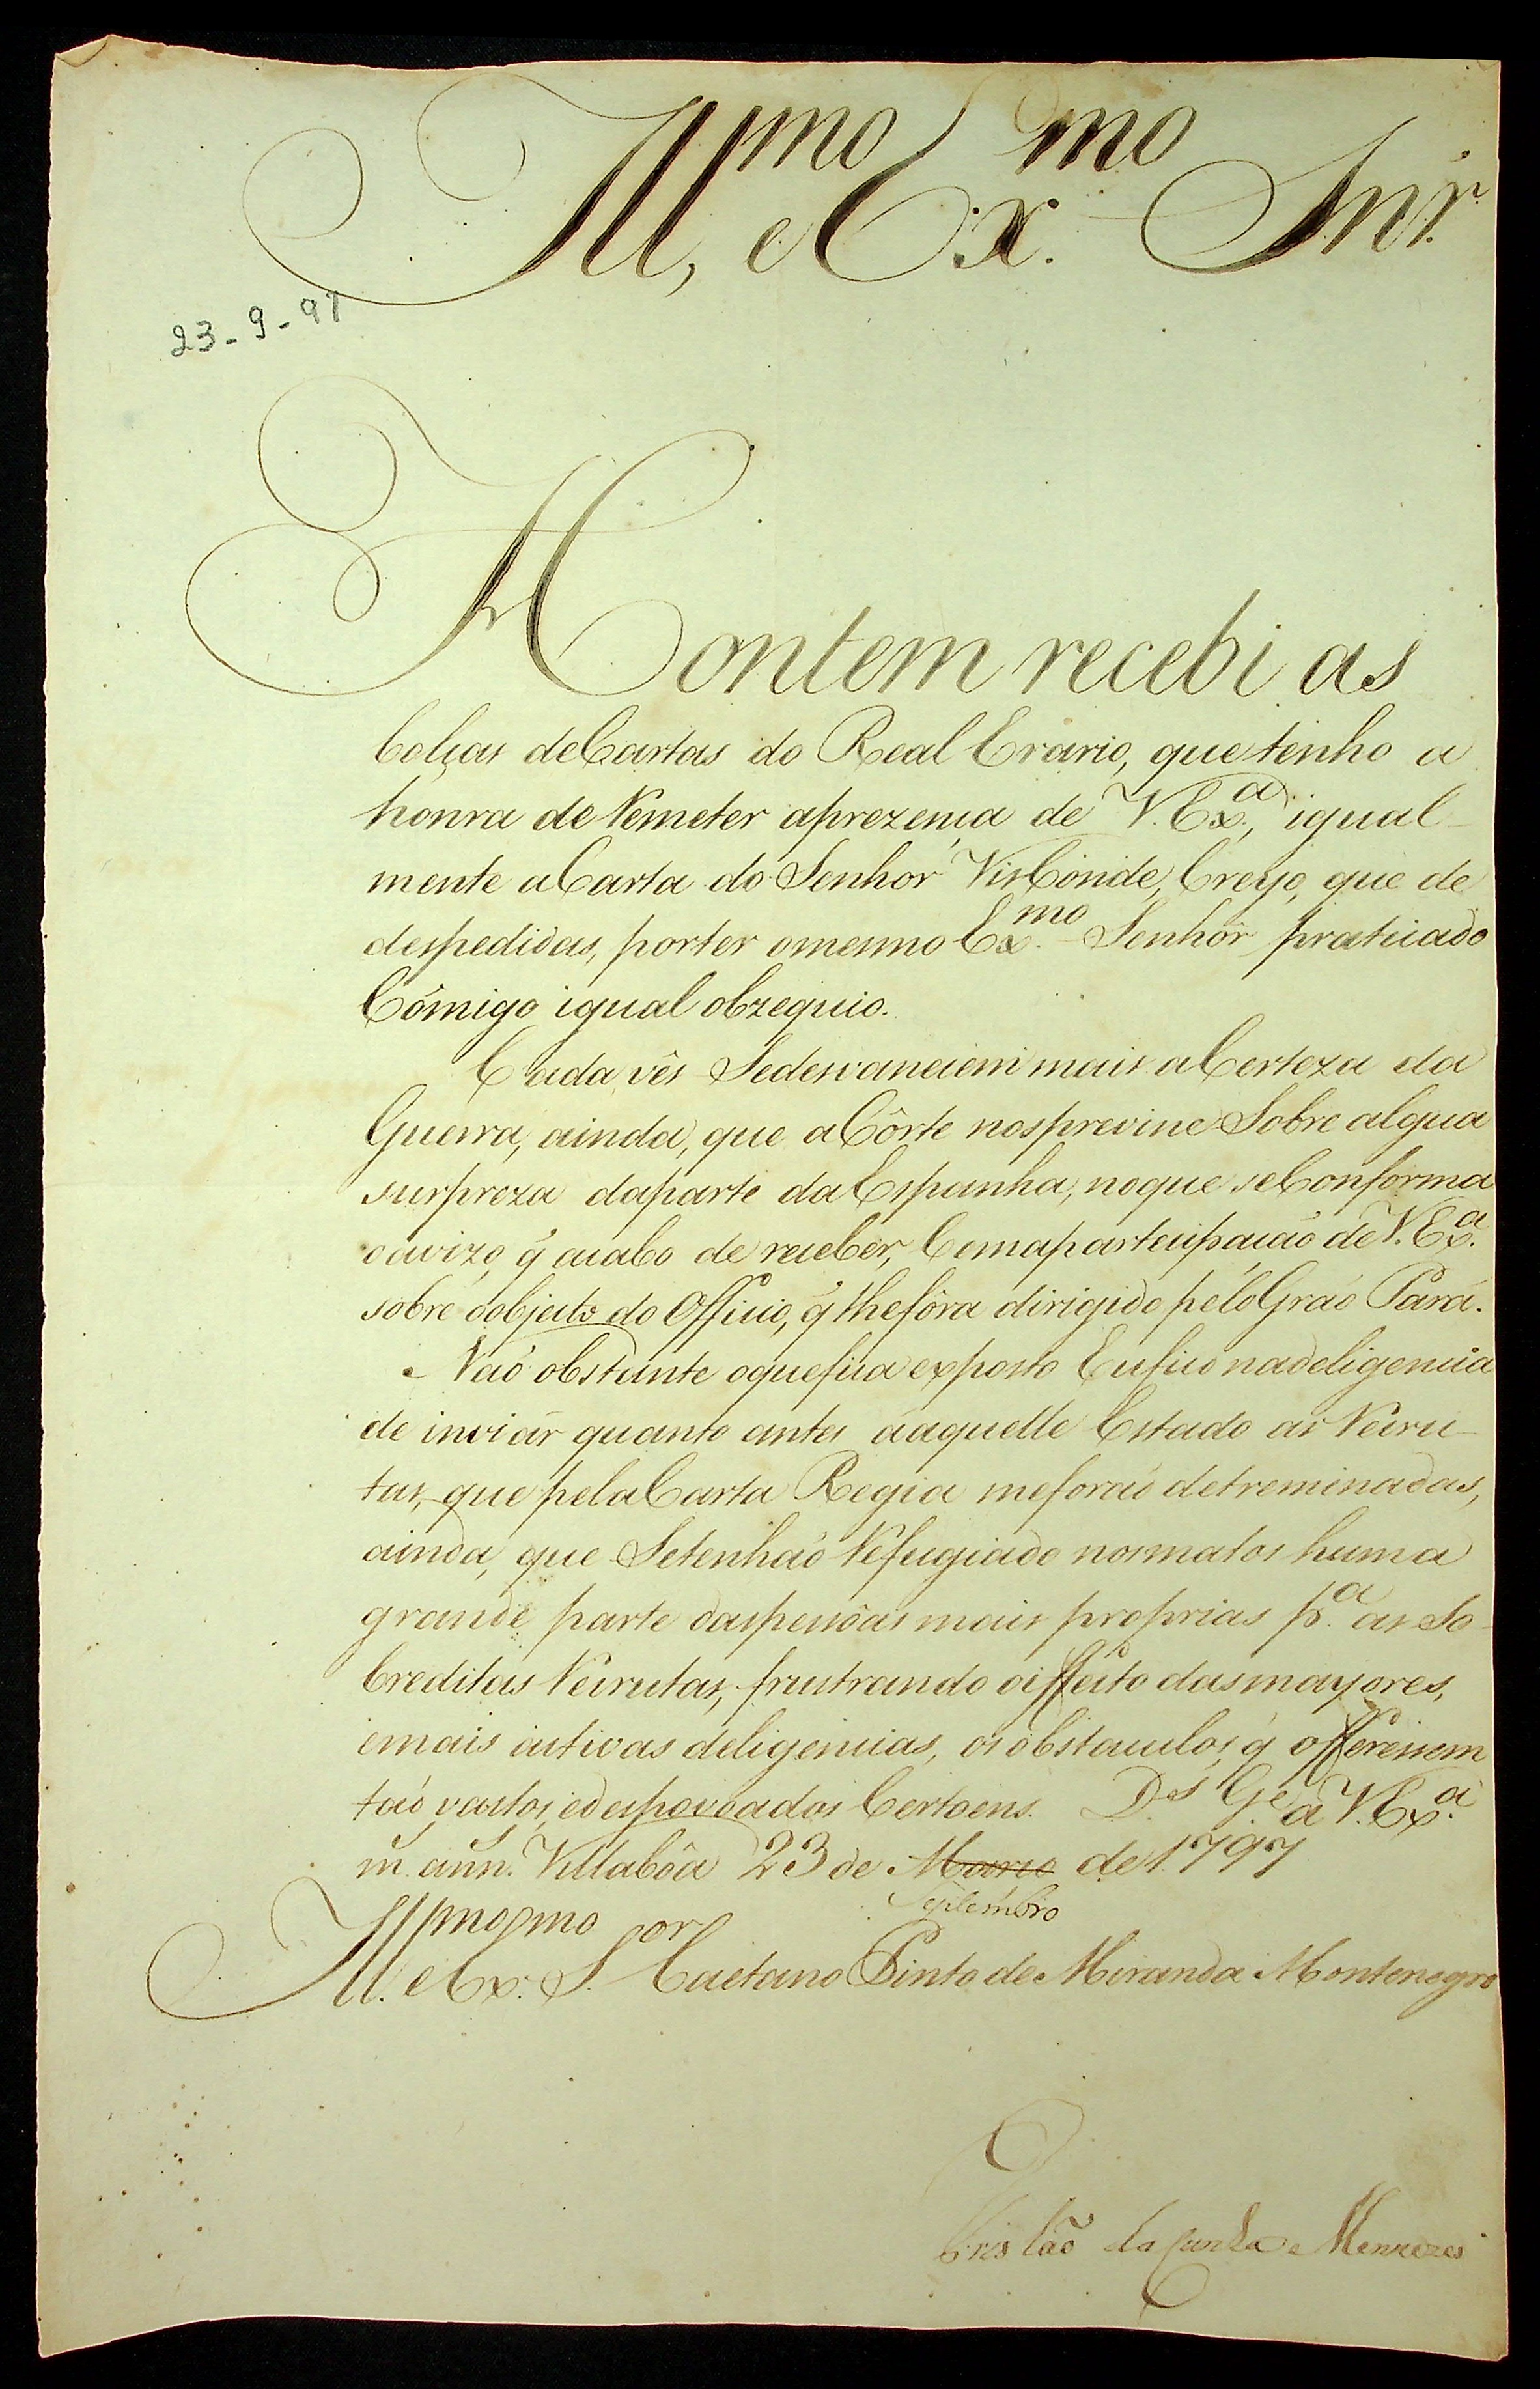 Ill.mo, e Ex.mo Snr.
23-9-97
Hontem recebi as
bolças de Cartas do Real Erario, que tenho a
honra de Remeter aprezença de V. Ex.a, igual-
mente a Carta do Senhor VisConde, Creyo, que de
despedidas, porter omesmo Ex.mo Senhor praticado
Cómigo igual obzequio.
Cada vês Sedesvanecem mais aCerteza da
Guerra, ainda, que a Côrte nosprevine Sobre algua
surpreza daparte da Espanha, noque seConforma
oavizo, q̃ acabo de receber, Comaparticipação de V. Ex.a
sobre oobjecto do Officio, q̃ lhefôra dirigido pelo Graõ Pará.
Naõ obstante oquefica exposto Eufico nadeligencia
de inviar quanto antes áaquelle Estado as Recru-
tas, que pela Carta Regia meforaõ detreminadas,
ainda, que Setenhaõ Refugiado nosmatos huma
grande parte daspessôas mais proprias p.a as So-
breditas Recrutas, frustrando oiffeito dasmayores,
emais activas deligencias, os obstaculos, q̃ offeressem
taõ vastos, edespovoados Certoens. D.s G.e a V. Ex.a
m. ann. Villabôa 23 de Março de 1797
Septembro
Ill.mo e Ex.mo S.or Caetano Pinto de Miranda Montenegro
Tristão da Cunha Menezes